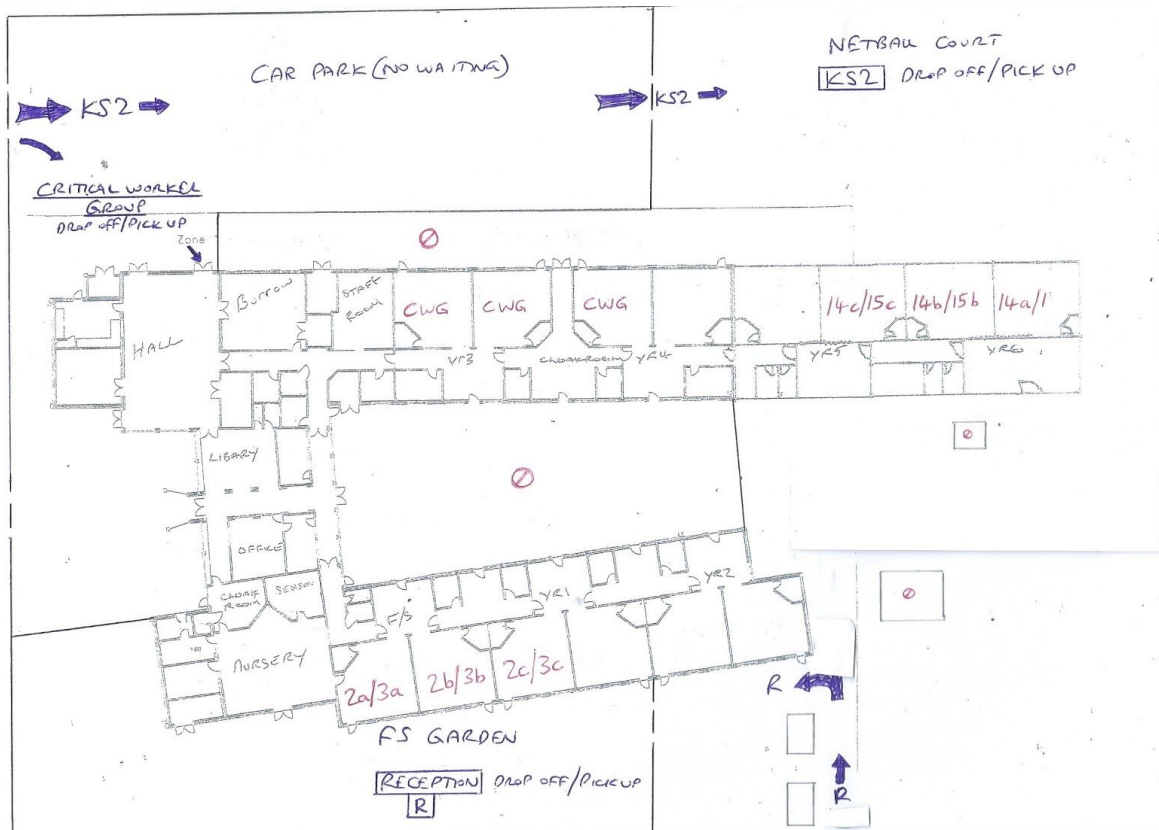 CAR PARK (NO WAITING)
NETBALL COURT
KS2 DROP OFF/PICK UP
KS2
KS2
CRITICAL WORKER
GROUP
DROP OFF/PICK UP
Zone
BURROW
STAFF
ROOM
CWG
CWG
CWG
14c/15c
14b/15b
14a/1
HALL
YR3
CLOAKROOM
YR4
YR5
YR6
LIBARY
OFFICE
CLOAK
ROOM
SENSO
F/S
YR1
YR2
NURSERY
2a/3a
2b/3b
2c/3c
R
FS GARDEN
RECEPTION DROP OFF/PICK UP
R
R